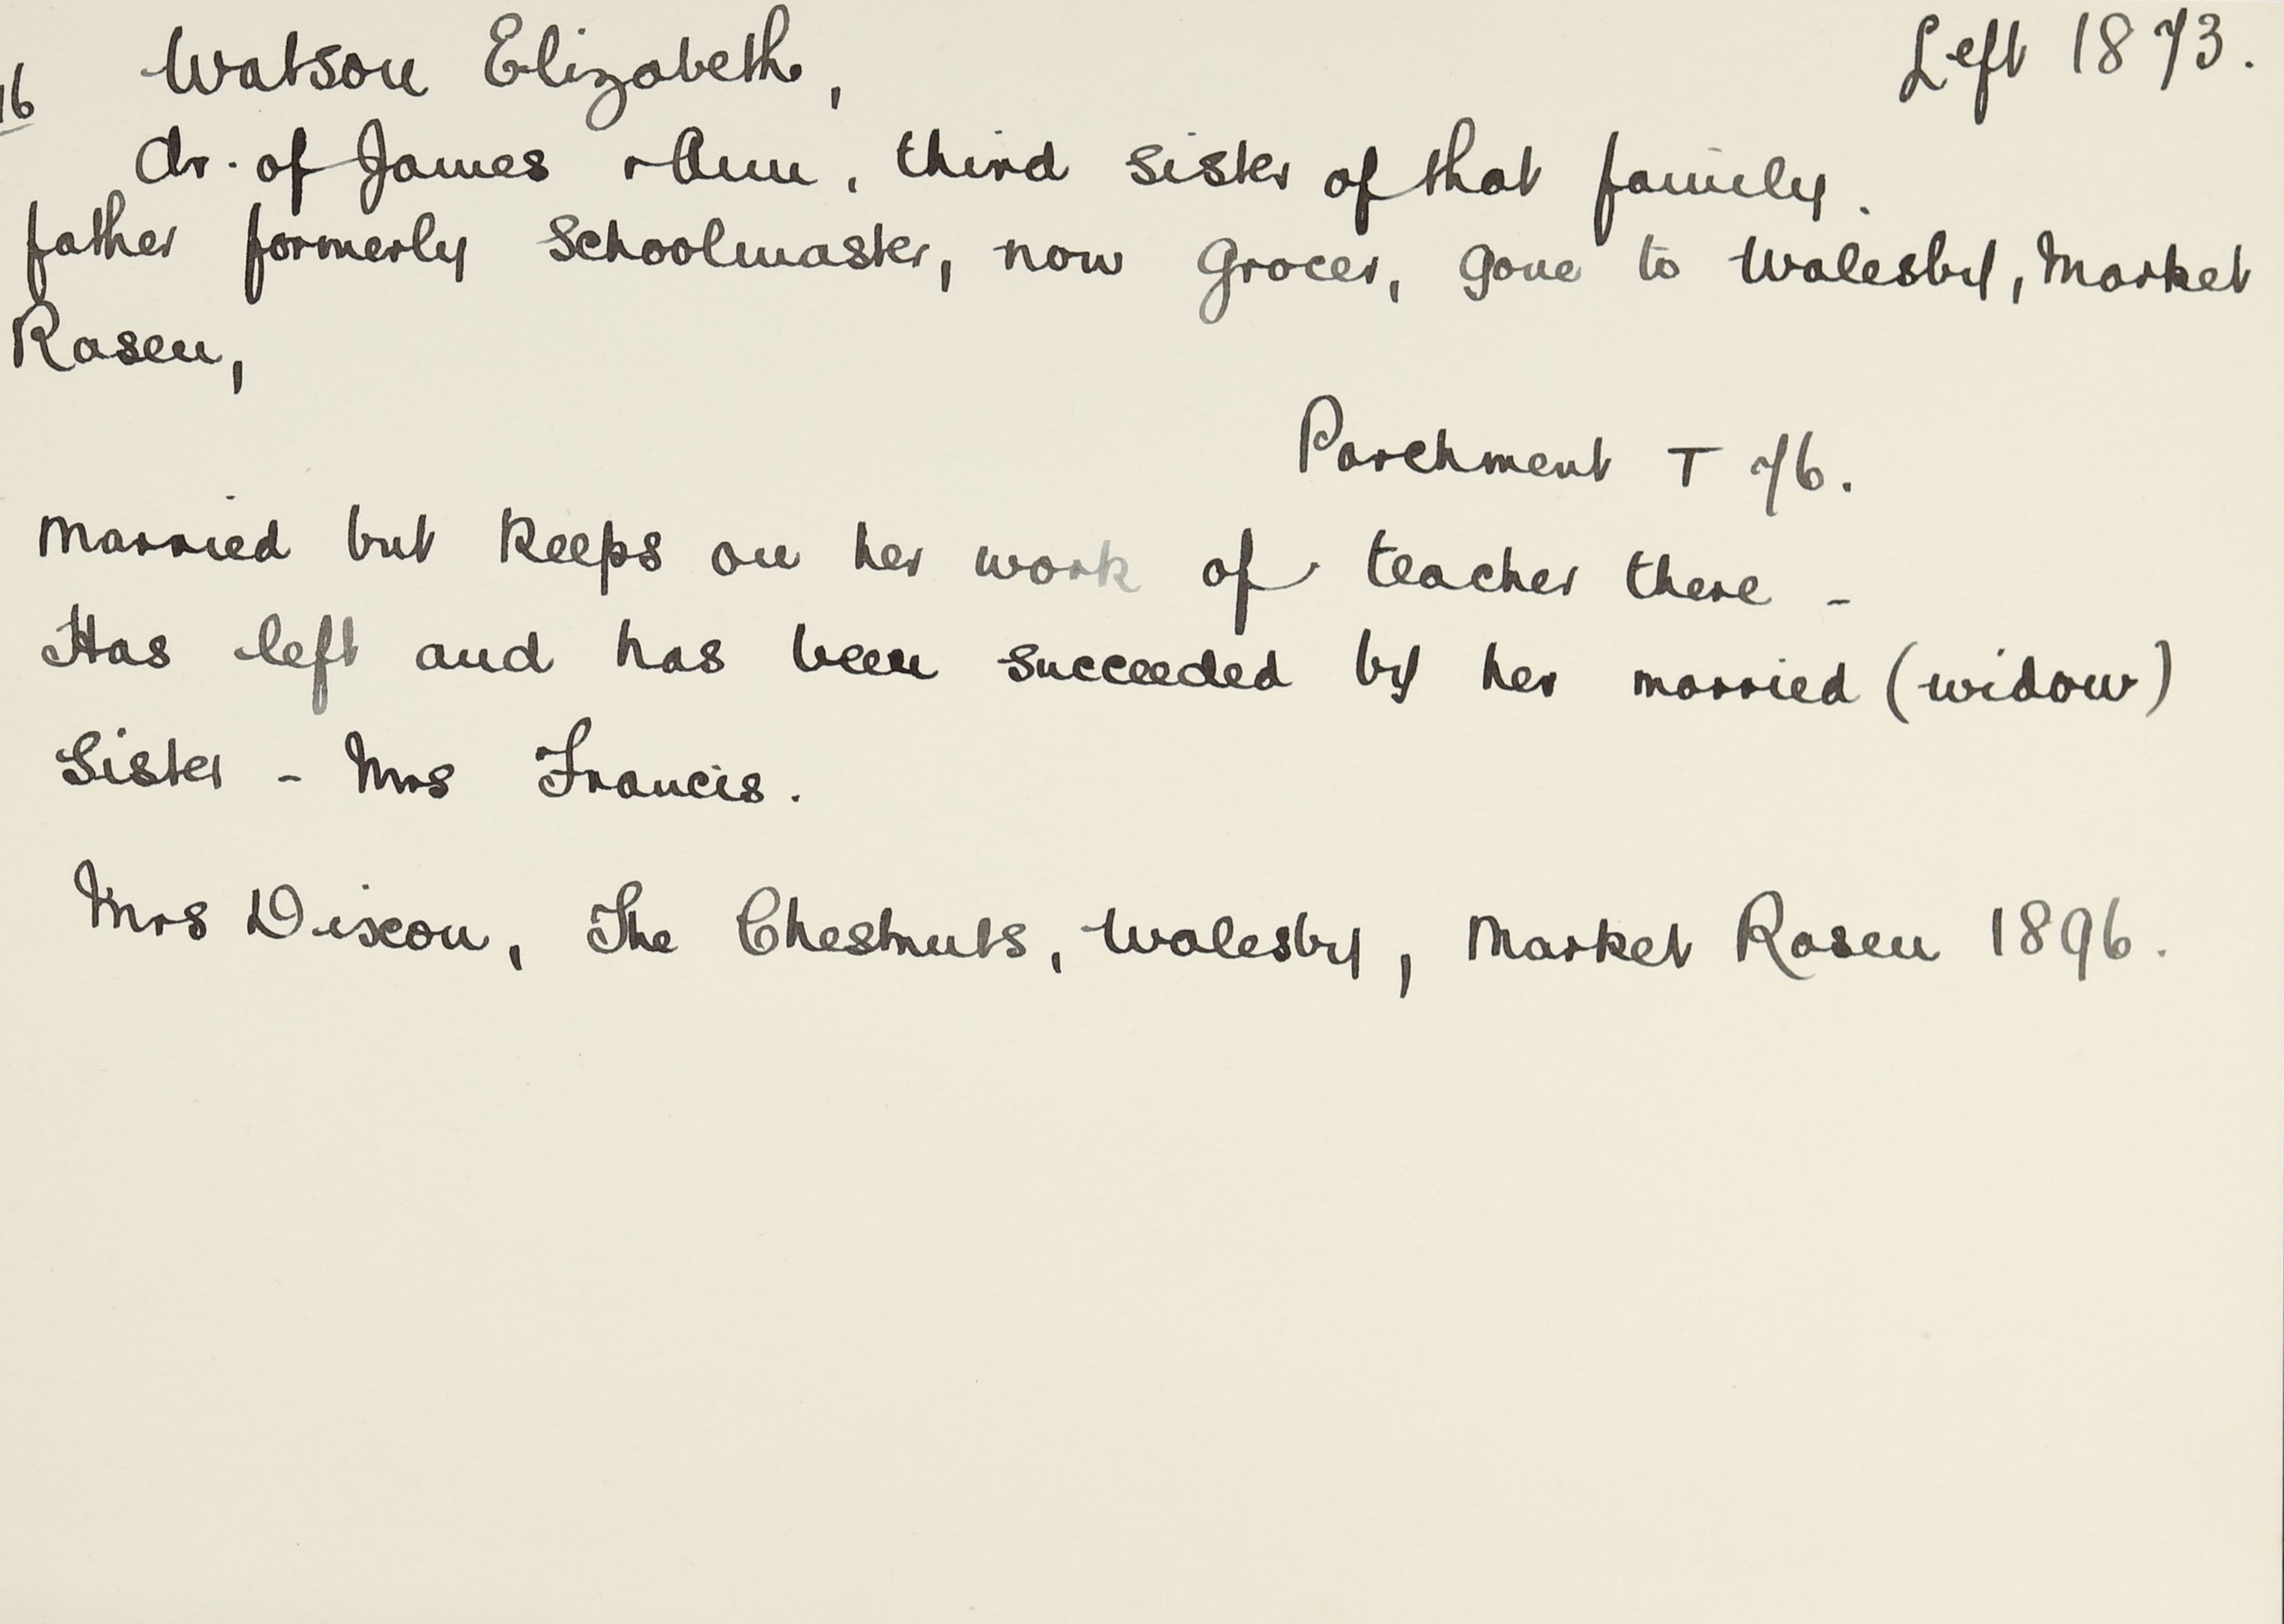 16 Watson Elizabeth, Left 1873.
dr. of James + Ann, third sister of that family.
father formerly Schoolmaster, now Grocer, gone to Walesby, Market
Rasen,
Parchment T 76.
Married but keeps on her work of teacher there -
Has left and has been succeeded by her married (widow)
Sister - Mrs Francis.
Mrs Dixon, The Chestnuts, Walesby, Market Rasen 1896.